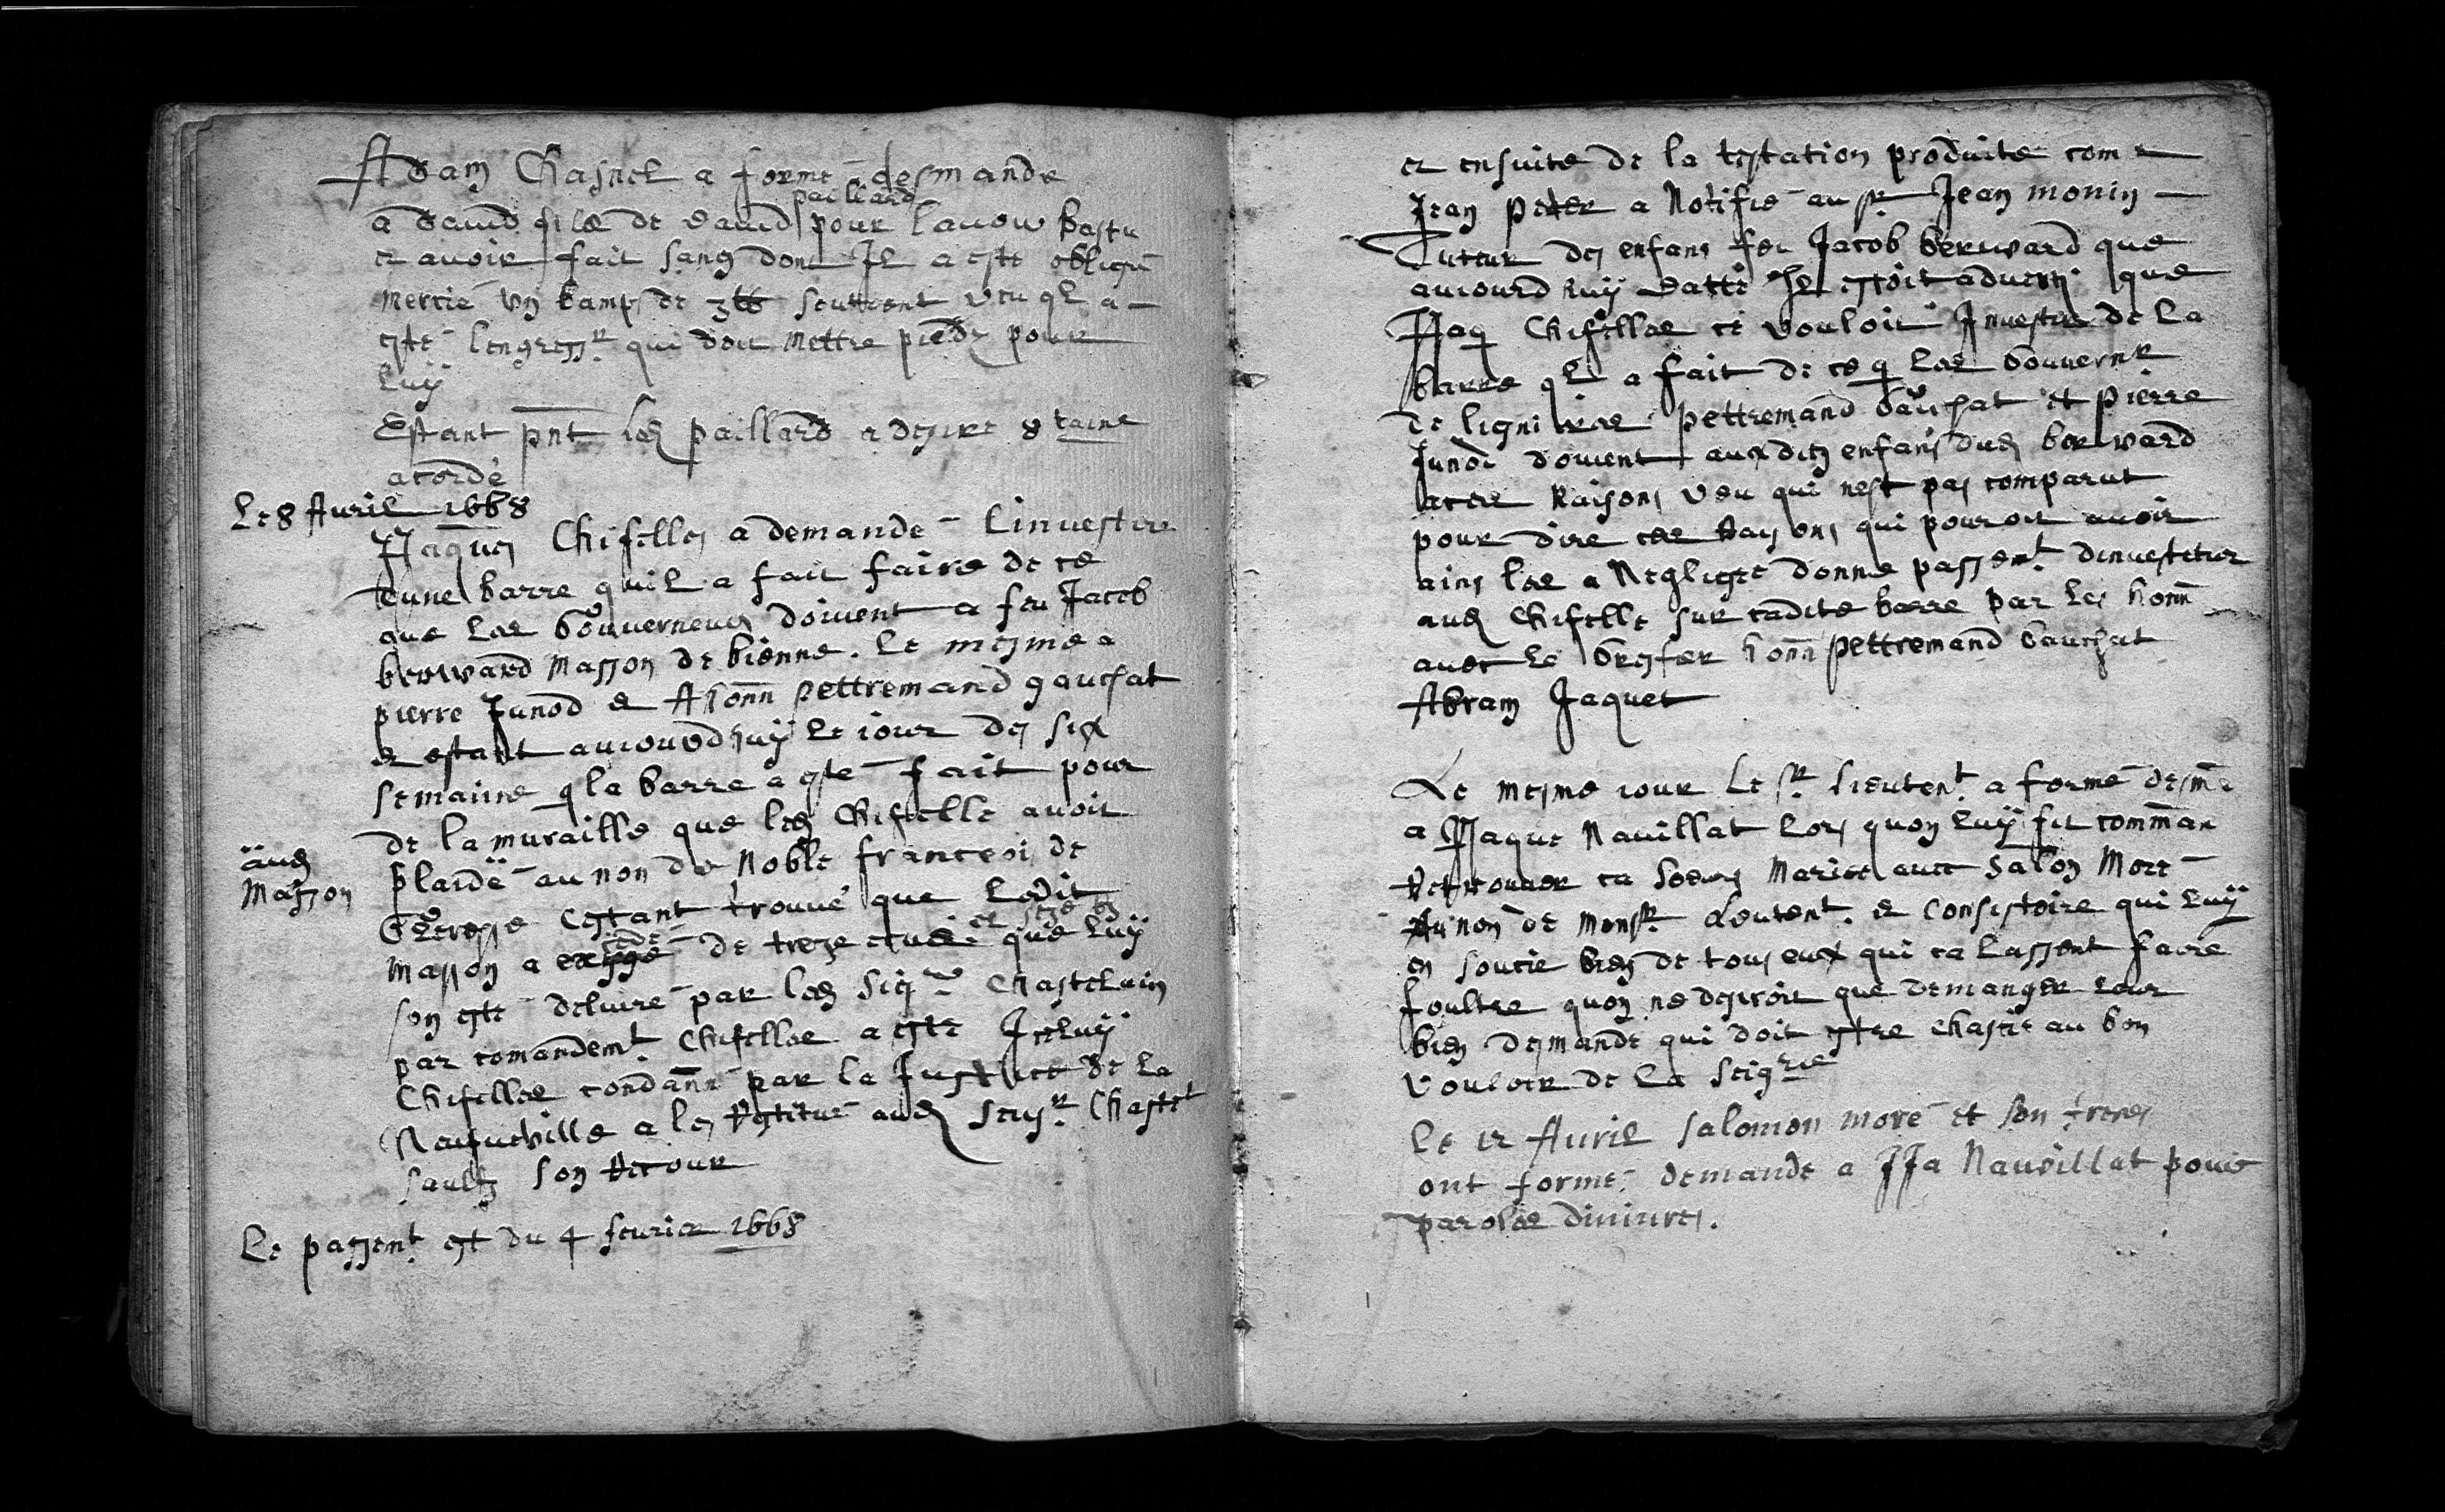 Adam Chasnel a formé desmande
paillard
a david filz de david pour lauoir bastu
et auoir fait sang dont Il a este obligé
mercié vn bamps de 3 lb seullement veu ql a
este lengress.r qui doit mettre piedz pour
luÿ
Estant pnt led paillard a desiré 8 taine
acordé
Le 8 Auril 1668
JJaques Chiffelles a demandé linuesture
dune barre quil a fait faire de ce
que les Gouuerneurs doiuent a feu Jacob
berward masson de bienne. Le mesme a
pierre Junod & A honn pettremand gauchat
& estant auiourdhuÿ le iour des six
semaine q la barre a esté fait pour
de la muraille que led Chifelle auoit
plaidé au non de Noble francois de
aud
masson
Gleresse Cestant trouué que ledit
cede
et seze bz
masson a de treze escus que luÿ
son esté deliuré par led Sig.r Chastelain
par comandem.t Chifelles a este Iceluÿ
Chifelles condanné par la Justice de la
Neufueville a les restitué aud seig.r Chastel
saulfz son retour
Le passent est du 4 feurier 1668
et ensuite de la testation produite com
Jean peter a Notifié au sr Jean monin
Tuteur des enfans feu Jacob berward que
auiourdhuÿ datte Il estoit aduerti que
JJaq Chifelles ce vouloit Inuestir de la
barre ql a fait de ce q les Gouuernr
de lignieres pettremand Gauchat et pierre
Junod doiuent auxdits enfans dud berward
autre Raisons veu qui nest pas comparut
pour dire ces raysons qui pouroit auoir
ains les a Negligee donne passem.t dinuesteture
aud Chifelle sur cadite barre par les honn
auec le Grefier honn pettremand Gauchat
Abram Jaquet
Le mesme iour le sr. lieuten.t a formé desm.de
a JJaque Nauillat lors quon luÿ fit comman
retrouuer ca soeurs Mariee auec Salon More
Au non de monsr. Lieuten.t & Consistoire qui luÿ
en soucie bien de tous eux qui ce lassent faire
foultre quon ne desiroit que demanger leur
bien desmande qui doit estre chastie au bon
vouloir de la seigrie
Le 12 Auril Salomon moré et son freres
ont formé demande a JJa Nauillat pour
parolles diniures.